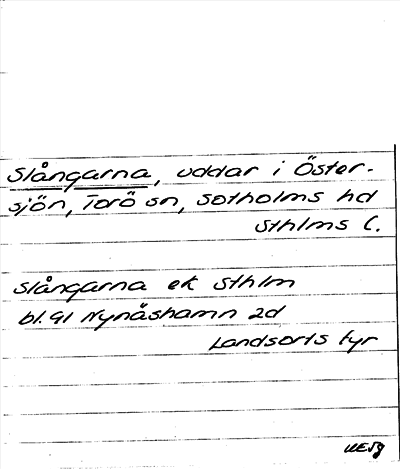 Slångarna, uddar i Öster-
sjön, Torö sn, Sotholms hd
Sthlms l.
Slångarna ek Sthlm
bl. 91 Nynäshamn 2d
Landsorts fyr